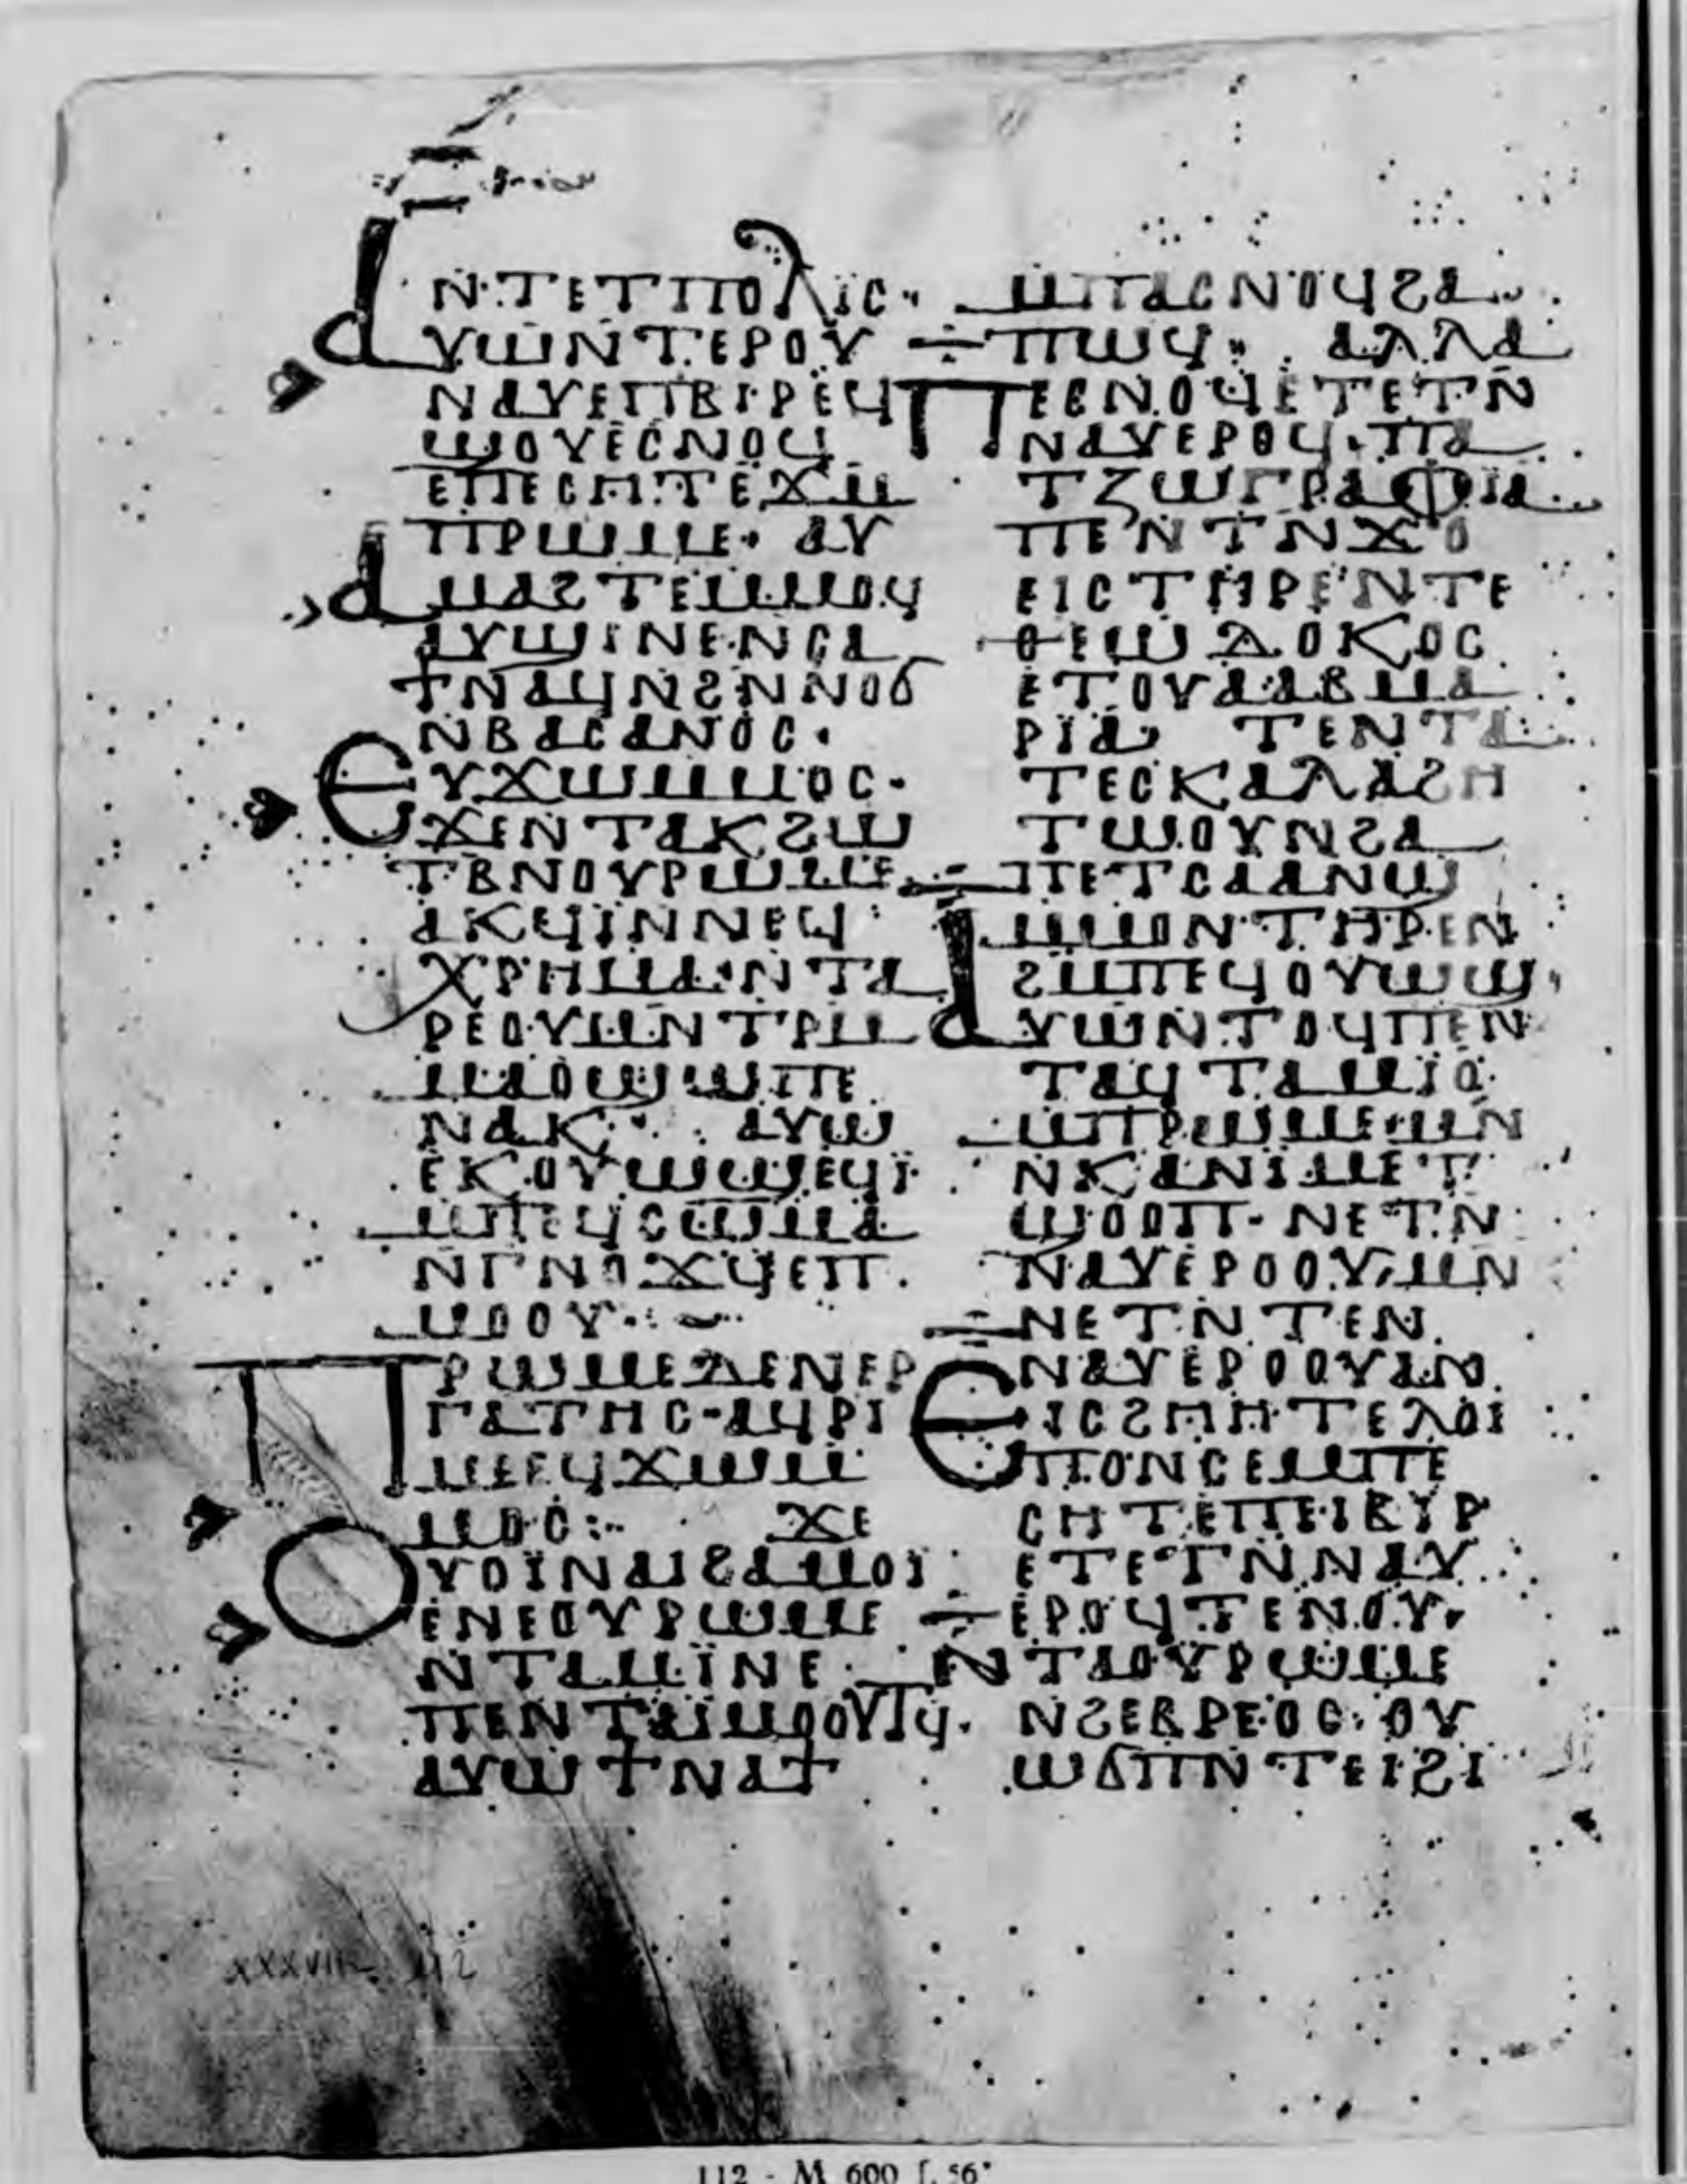 ⲛⲧⲉⲧⲡⲟⲗⲓⲥ·
ⲁⲩⲱⲛⲧⲉⲣⲟⲩ
ⲛⲁⲩⲉⲡⲃⲓⲣⲉϥ
ϣⲟⲩⲉⲥⲛⲟϥ
ⲉⲡⲉⲥⲏⲧⲉϫⲙ
ⲡⲣⲱⲙⲉ· ⲁⲩ
ⲁⲙⲁϩⲧⲉⲙⲙⲟϥ
ⲁⲩϣⲓⲛⲉⲛⲥⲁ
ϯⲛⲁϥⲛϩⲛⲛⲟϭ
ⲛⲃⲁⲥⲁⲛⲟⲥ·
ⲉⲩϫⲱⲙⲙⲟⲥ·
ϫⲉⲛⲧⲁⲕϩⲱ
ⲧⲃⲛⲟⲩⲣⲱⲙⲉ
ⲁⲕϥⲓⲛⲛⲉϥ
ⲭⲣⲏⲙⲁ·ⲛⲧⲁ
ⲣⲉⲟⲩⲙⲛⲧⲣⲙ
ⲙⲁⲟϣⲱⲡⲉ
ⲛⲁⲕ· ⲁⲩⲱ
ⲉⲕⲟⲩⲱϣⲉϥⲓ
ⲙⲡⲉϥⲥⲱⲙⲁ
ⲛⲅⲛⲟϫϥⲉⲡ
ⲙⲟⲟⲩ·
ⲡⲣⲱⲙⲉⲇⲉⲛⲉⲣ
ⲅⲁⲧⲏⲥ·ⲁϥⲣⲓ
ⲙⲉⲉϥϫⲱⲙ
ⲙⲟⲥ: ϫⲉ
ⲟⲩⲟⲓⲛⲁⲓϩⲁⲙⲟⲓ
ⲉⲛⲉⲟⲩⲣⲱⲙⲉ
ⲛⲧⲁⲙⲓⲛⲉ
ⲡⲉⲛⲧⲁⲓⲙⲟⲟⲩⲧϥ·
ⲁⲩⲱϯⲛⲁϯ
ⲙⲡⲁⲥⲛⲟϥϩⲁ
ⲡⲱϥ· ⲁⲗⲗⲁ
ⲡⲉⲥⲛⲟϥⲉⲧⲉⲧⲛ
ⲛⲁⲩⲉⲣⲟϥ·ⲡⲁ
ⲧⲍⲱⲅⲣⲁⲫⲓⲁ
ⲡⲉⲛⲧⲛϫⲟ
ⲉⲓⲥⲧⲏⲣⲉⲛⲧⲉ
ⲑⲉⲱⲇⲟⲕⲟⲥ
ⲉⲧⲟⲩⲁⲁⲃⲙⲁ
ⲣⲓⲁ· ⲧⲉⲛⲧⲁ
ⲧⲉⲥⲕⲁⲗⲁϩⲏ
ⲧⲱⲟⲩⲛϩⲁ
ⲡⲉⲧⲥⲁⲁⲛϣ
ⲙⲙⲟⲛⲧⲏⲣⲉⲛ
ϩⲙⲡⲉϥⲟⲩⲱϣ·
ⲁⲩⲱⲛⲧⲟϥⲡⲉⲛ
ⲧⲁϥⲧⲁⲙⲓⲟ
ⲙⲡⲣⲱⲙⲉⲙⲛ
ⲛⲕⲁⲛⲓⲙⲉⲧ
ϣⲟⲟⲡ·ⲛⲉⲧⲛ
ⲛⲁⲩⲉⲣⲟⲟⲩ·ⲙⲛ
ⲛⲉⲧⲛⲧⲉⲛ
ⲛⲁⲩⲉⲣⲟⲟⲩⲁⲛ
ⲉⲓⲥϩⲏⲏⲧⲉⲗⲟⲓ
ⲡⲟⲛⲥⲉⲙⲡⲉ
ⲥⲏⲧⲉⲡⲉⲓⲃⲓⲣ
ⲉⲧⲉⲧⲛⲛⲁⲩ
ⲉⲣⲟϥⲧⲉⲛⲟⲩ·
ⲛⲧⲁⲟⲩⲣⲱⲙⲉ
ⲛϩⲉⲃⲣⲉⲟⲥ·ⲟⲩ
ⲱϭⲡⲛⲧⲉⲓϩⲓ
XXXVIII 112
112 - M 600 f. 56ᵛ